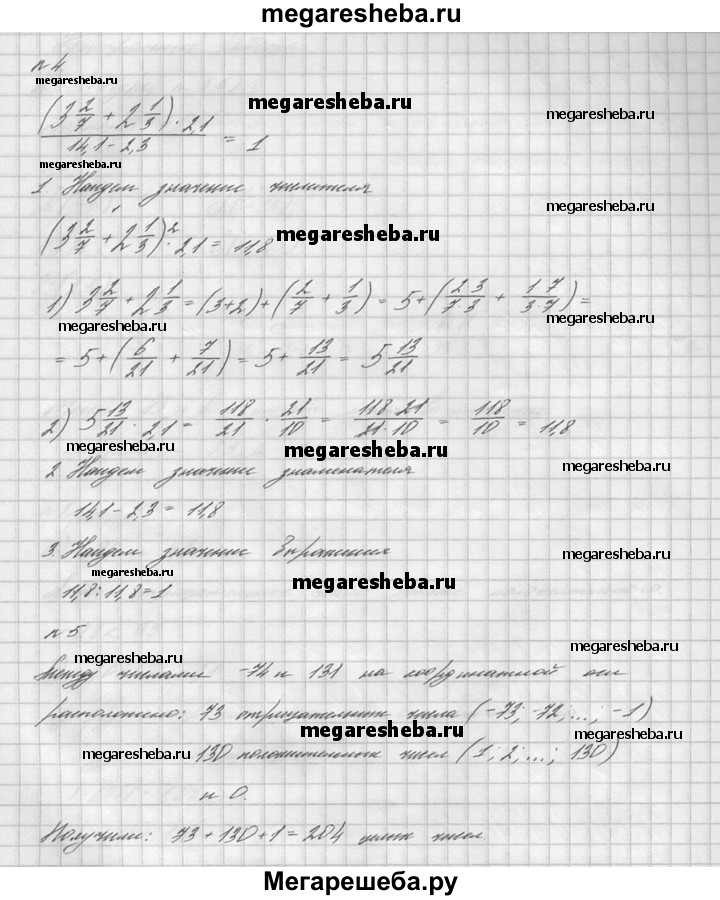 megaresheba.ru
n 4.
megaresheba.ru
(3 2/7 + 2 1/3) · 2,1 / 14,1 - 2,3 = 1
megaresheba.ru
megaresheba.ru
megaresheba.ru
1. Найдем значение числителя
megaresheba.ru
(3 2/7 + 2 1/3) · 2,1 = 11,8
megaresheba.ru
1) 3 2/7 + 2 1/3 = (3+2) + (2/7 + 1/3) = 5 + (2·3/7·3 + 1·7/3·7) =
megaresheba.ru
megaresheba.ru
= 5 + (6/21 + 7/21) = 5 + 13/21 = 5 13/21
2) 5 13/21 · 2,1 = 118/21 · 21/10 = 118·21/21·10 = 118/10 = 11,8
megaresheba.ru
megaresheba.ru
2. Найдем значение знаменателя
megaresheba.ru
14,1 - 2,3 = 11,8
3. Найдем значение выражения
megaresheba.ru
megaresheba.ru
megaresheba.ru
11,8 : 11,8 = 1
n 5.
megaresheba.ru
megaresheba.ru
Между числами -74 и 131 на координатной оси
расположено: 73 отрицательных числа (-73; -72; ...; -1)
megaresheba.ru
megaresheba.ru
megaresheba.ru
130 положительных чисел (1; 2; ...; 130)
и 0.
Получили: 73 + 130 + 1 = 204 целых чисел.
Мегарешеба.ру